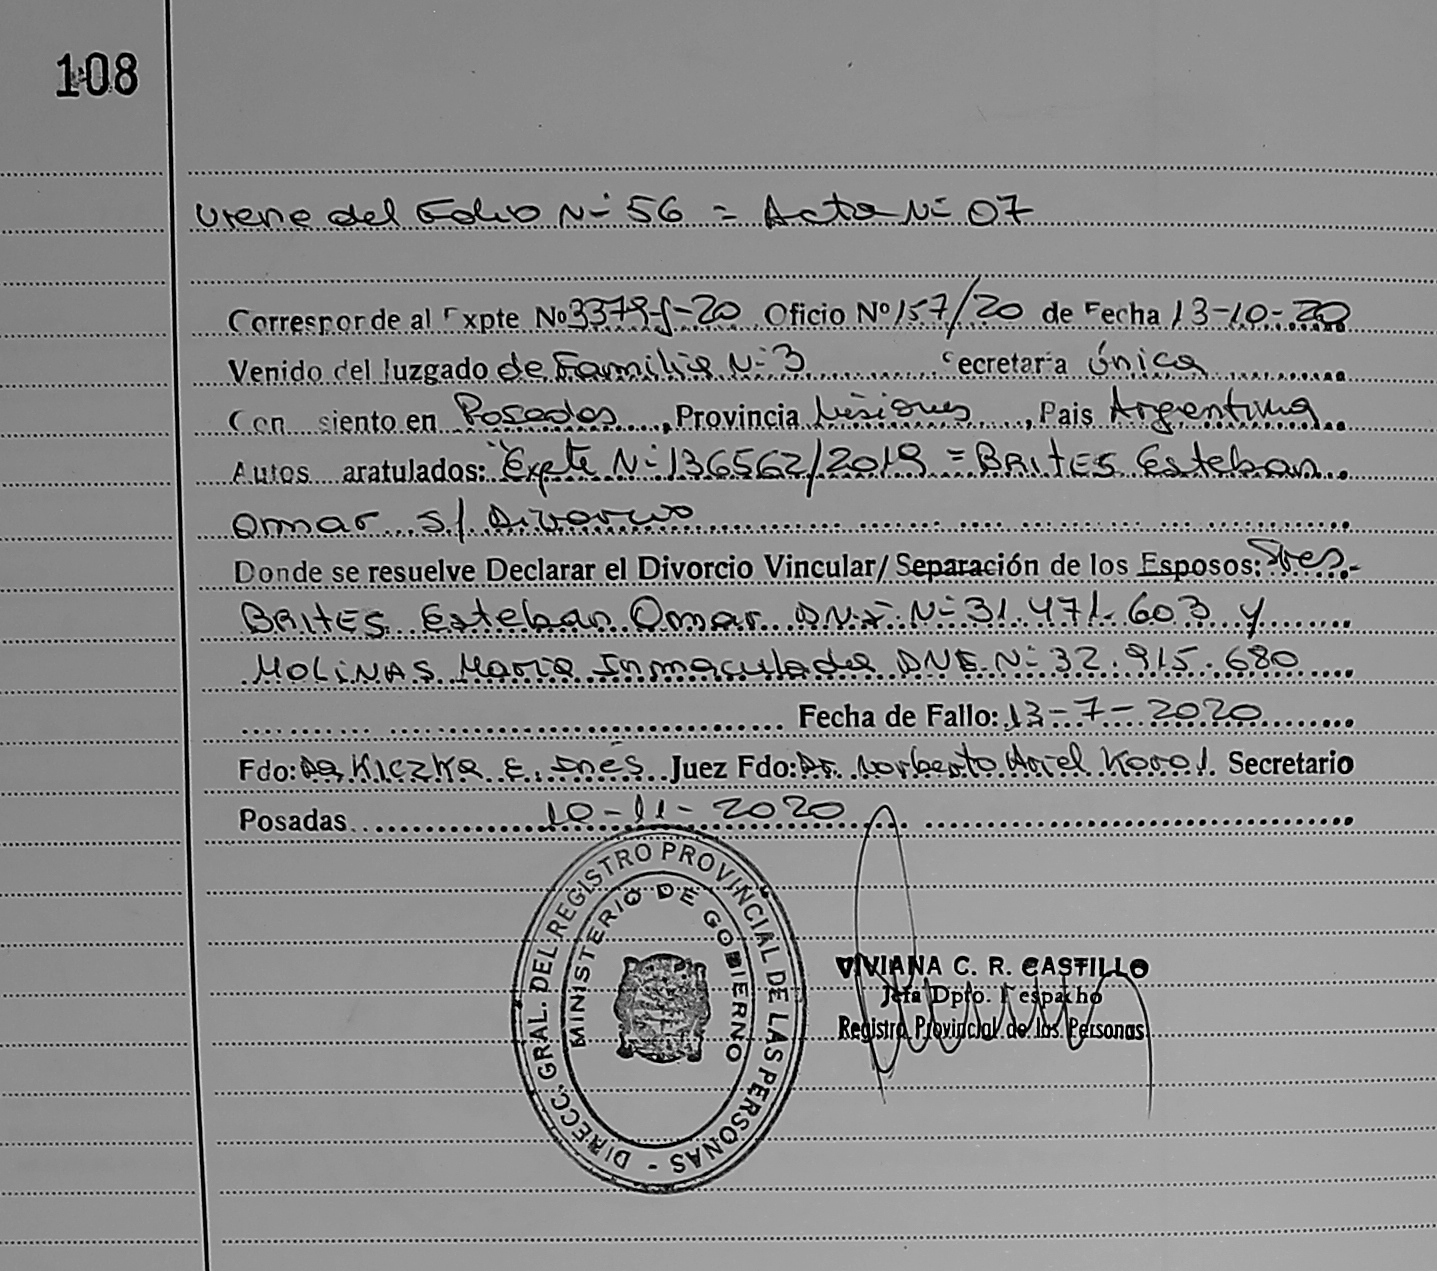 108
Viene del Folio Nº 56 = Acta Nº 07
Corresponde al Expte Nº 3379-J-20 Oficio Nº 157/20 de Fecha 13-10-20
Venido del Juzgado de Familia Nº 3 Secretaria Única
Con siento en Posadas, Provincia Misiones, Pais Argentina
Autos aratulados: "Expte Nº 136562/2019 = BRITES Esteban
Omar s/ Divorcio
Donde se resuelve Declarar el Divorcio Vincular/Separación de los Esposos: Sres.-
BRITES Esteban Omar DNI Nº 31.471.603 y
MOLINAS Maria Inmaculada DNI Nº 32.915.680
Fecha de Fallo: 13-7-2020
Fdo: Dra KICZKA E. Inés Juez Fdo: Dr. Norberto Ariel Korol Secretario
Posadas 10-11-2020
DIRECC. GRAL. DEL REGISTRO PROVINCIAL DE LAS PERSONAS -
MINISTERIO DE GOBIERNO
VIVIANA C. R. CASTILLO
Jefa Dpto. Despacho
Registro Provincial de las Personas